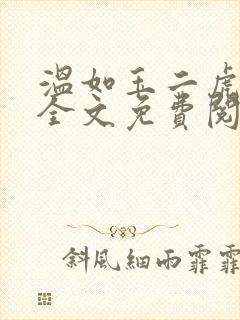 温如玉二虎
全文免費閱
斜風細雨霏霏